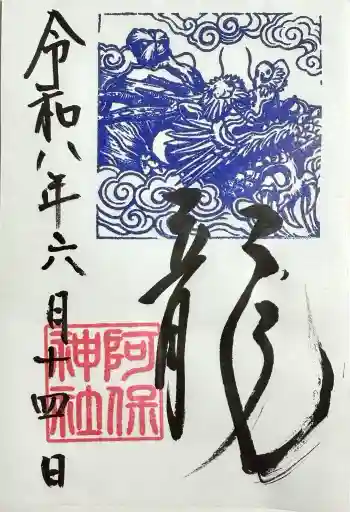 龍
阿保
神社
令和八年六月十四日